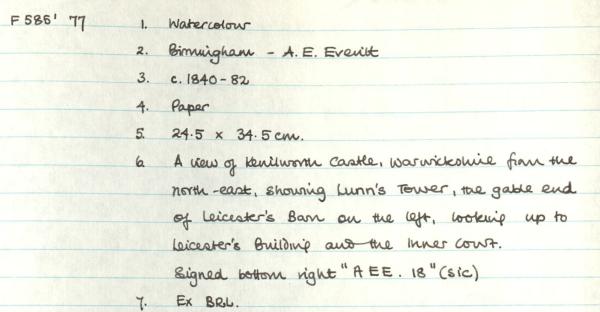 F586' 77
1. Watercolour
2. Birmingham - A. E. Everitt
3. c. 1840-82
4. Paper
5. 24.5 x 34.5 cm.
6. A view of Kenilworth Castle, Warwickshire from the
north-east, showing Lunn's Tower, the gable end
of Leicester's Barn on the left, looking up to
Leicester's Building and the Inner Court.
Signed bottom right "A EE. 18" (sic)
7. Ex BRL.